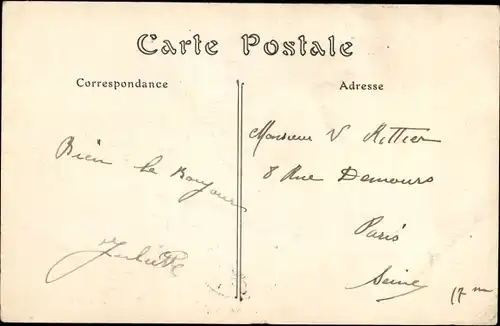 Carte Postale
Correspondance
Adresse
Bien le Bonjour
Juliette
Monsieur V Rittier
8 Rue Demours
Paris
Seine
17 m